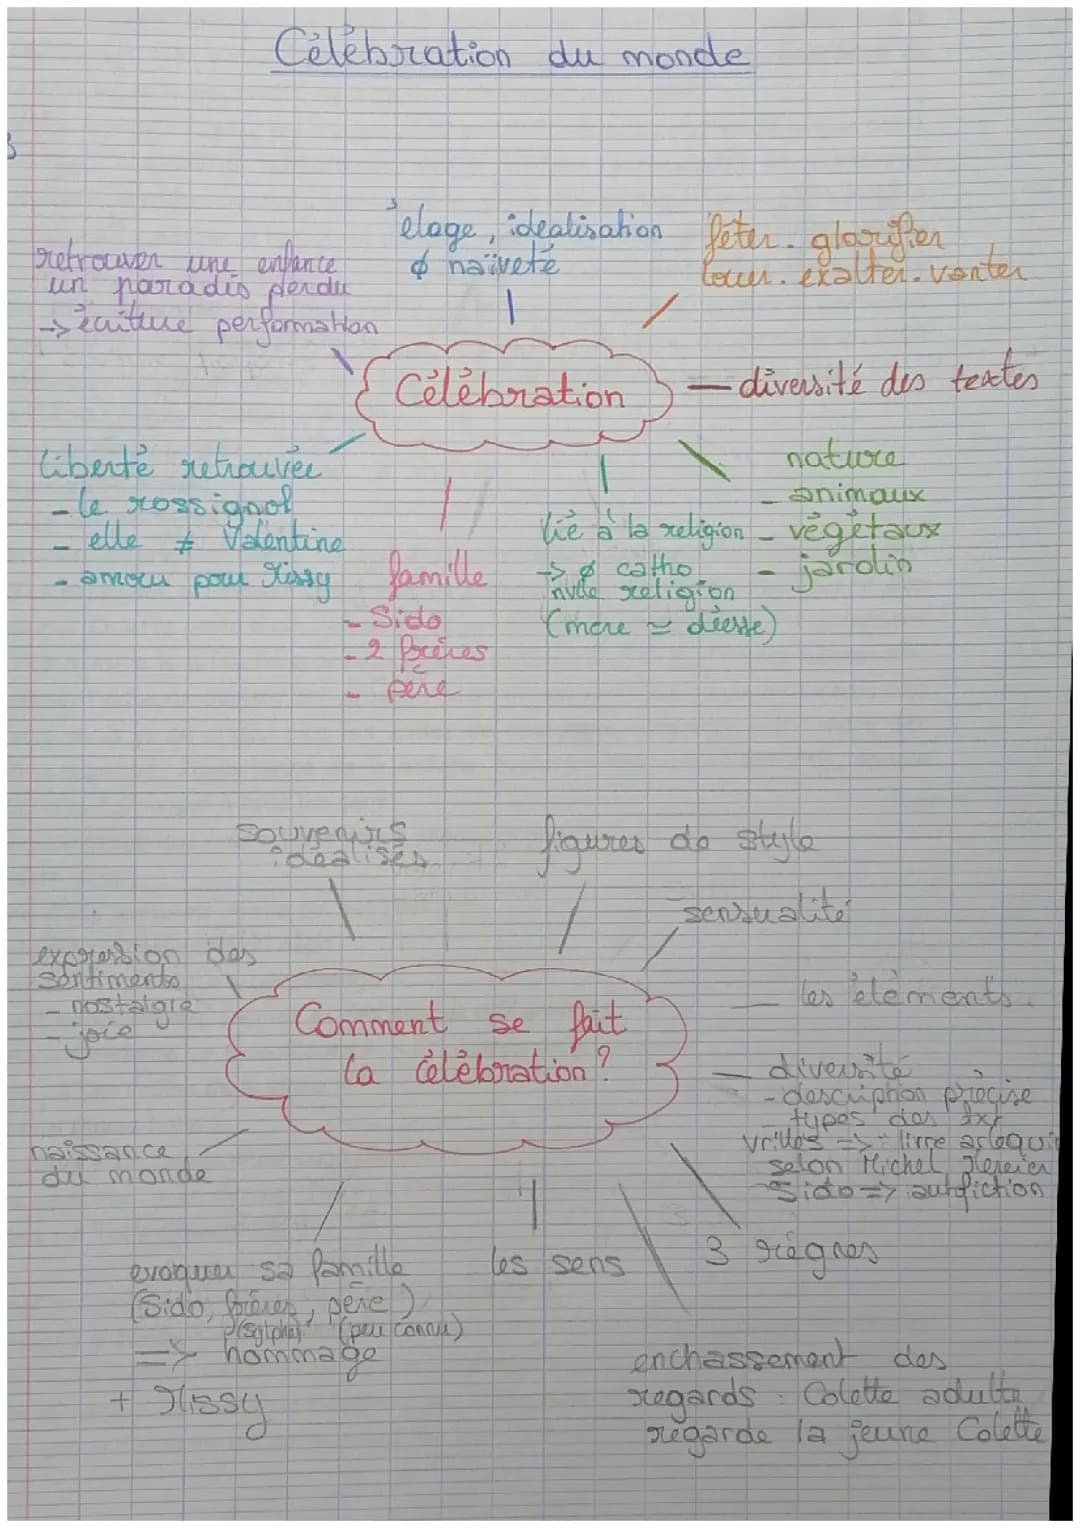 Célébration du monde
élage, idéalisation
∅ naïveté
fêter. glorifier
louer. exalter. vanter
retrouver une enfance
un paradis perdu
-> écriture
Célébration
— diversité des textes
liberté retrouvée
- le rossignol
- elle ≠ Valentine
- amour pour Missy
famille
- Sido
- 2 frères
- père
lié à la religion
-> ∅ catho
religion
(mère = déesse)
nature
- animaux
- végétaux
- jardin
souvenirs
idéalisés
figures de style
sensualité
expression des
sentiments
- nostalgie
- joie
Comment se fait
la célébration ?
— les éléments
— diversité
- description précise
types des txt
vrilles => livre arlequi
selon Michel
Sido => autfiction
naissance
du monde
evoquer sa famille
(Sido, frères, père)
(peu connu)
=> hommage
+ Missy
les sens
3 règnes
enchassement des
regards : Colette adulte
regarde la jeune Colette